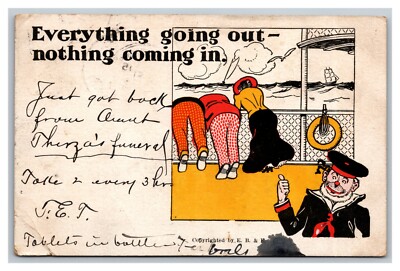 Everything going out—
nothing coming in,
Just got back
from Aunt
Thirza's funeral
Take 2 every 3 hrs
J.E.T.
Tablets in bottle for
Copyrighted by E. B. &